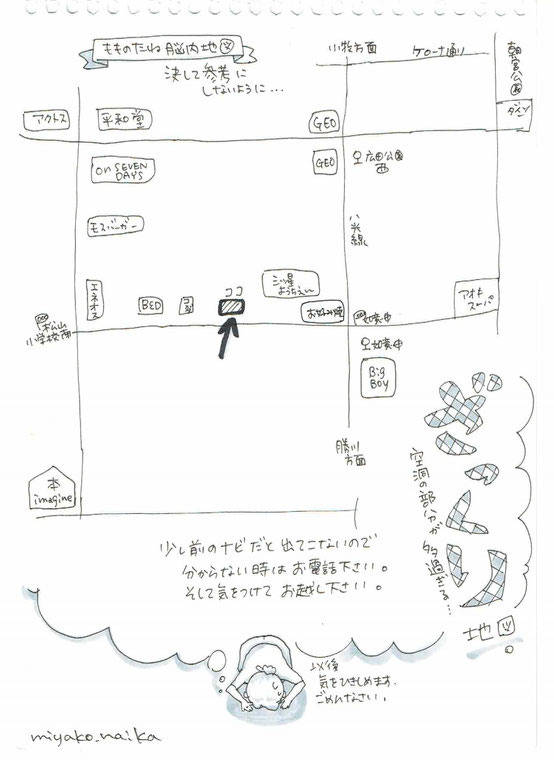 もものたね 脳内地図
決して参考に
しないように…
小牧方面
ケローナ通り
朝宮公園
アクトス
平和堂
GEO
ダイソー
on SEVEN
DAYS
GEO
広田公園
西
モスバーガー
八光線
エネオス
BED
ココ
三ツ星
ようちえん
お好み焼
如意申
アオキ
スーパー
松山
小学校南
如意申
Big
Boy
勝川
方面
本
imagine
ざっくり
空洞の部分が
多過ぎる…
地図。
少し前のナビだと出てこないので
分からない時はお電話下さい。
そして気をつけてお越し下さい。
以後
気をひきしめます。
ごめんなさい。
miyako.naika